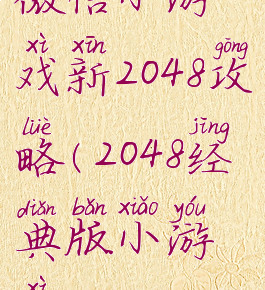 微信小游
xì xīn gōng
戏新2048攻
lüè jīng
略(2048经
diǎn bǎn xiǎo yóu
典版小游
xì